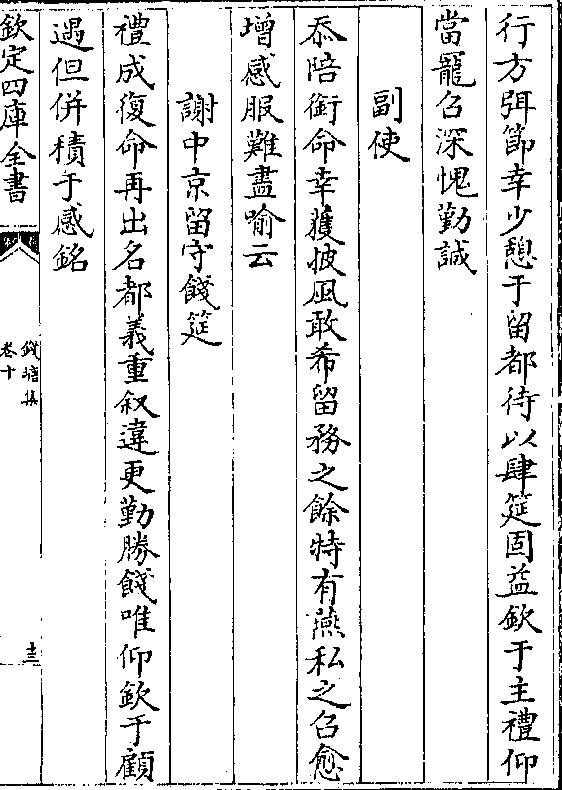 行方弭節幸少憩于留都待以肆筵固益欽于主禮仰
當寵召深愧勤誠
副使
忝陪銜命幸獲披風敢希留務之餘特有燕私之召愈
增感服難盡喻云
謝中京留守餞筵
禮成復命再出名都義重叙違更勤勝餞唯仰欽于顧
遇但併積于感銘
欽定四庫全書
錢塘集
卷十
十三